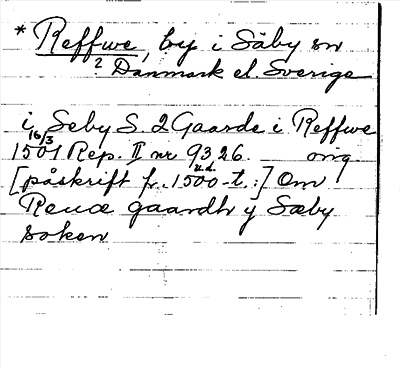 * Reffwe, by i Säby sn
? Danmark el. Sverige
i Seby S. 2 Gaarde i Reffwe
16/3
1501 Rep. II nr 9326. orig
[påskrift fr. 1500-t.:] Om
Reuæ gaardh y Sæby
soken